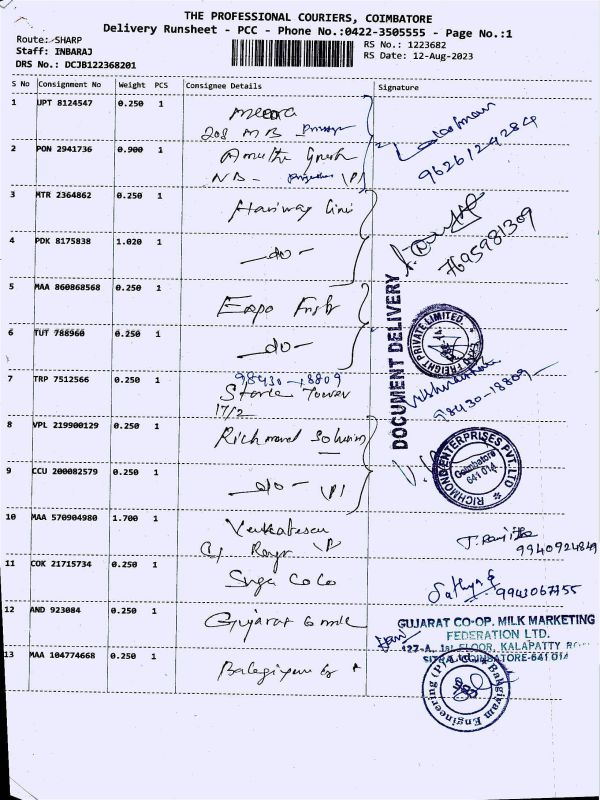 THE PROFESSIONAL COURIERS, COIMBATORE
Delivery Runsheet - PCC - Phone No.:0422-3505555 - Page No.:1
Route: SHARP
RS No.: 1223682
Staff: INBARAJ
RS Date: 12-Aug-2023
DRS No.: DCJB122368201
S No Consignment No Weight PCS Consignee Details Signature
1 UPT 8124547 0.250 1 Meera
208 MB
2 PON 2941736 0.900 1
9626124284
3 MTR 2364862 0.250 1
7695981309
4 PDK 8175838 1.020 1 -do-
DOCUMENT DELIVERY
5 MAA 860868568 0.250 1 Expo
EXPO FREIGHT PRIVATE LIMITED
6 TUT 788960 0.250 1 -do-
7 TRP 7512566 0.250 1 98430-18809
Tower
17/2
98430-18809
8 VPL 219900129 0.250 1 Richmond Solution
RICHMOND ENTERPRISES PVT.LTD
Coimbatore
641 014
9 CCU 200082579 0.250 1 -do-
10 MAA 570904980 1.700 1 Venkatesan
9940924849
11 COK 21715734 0.250 1
Sathya
12 AND 923084 0.250 1 Gujarat
GUJARAT CO-OP. MILK MARKETING
FEDERATION LTD.
127-A, 1st FLOOR, KALAPATTY
SITRA, COIMBATORE-641 014
13 MAA 104774668 0.250 1
Bakgiyam Engineering (P) Ltd